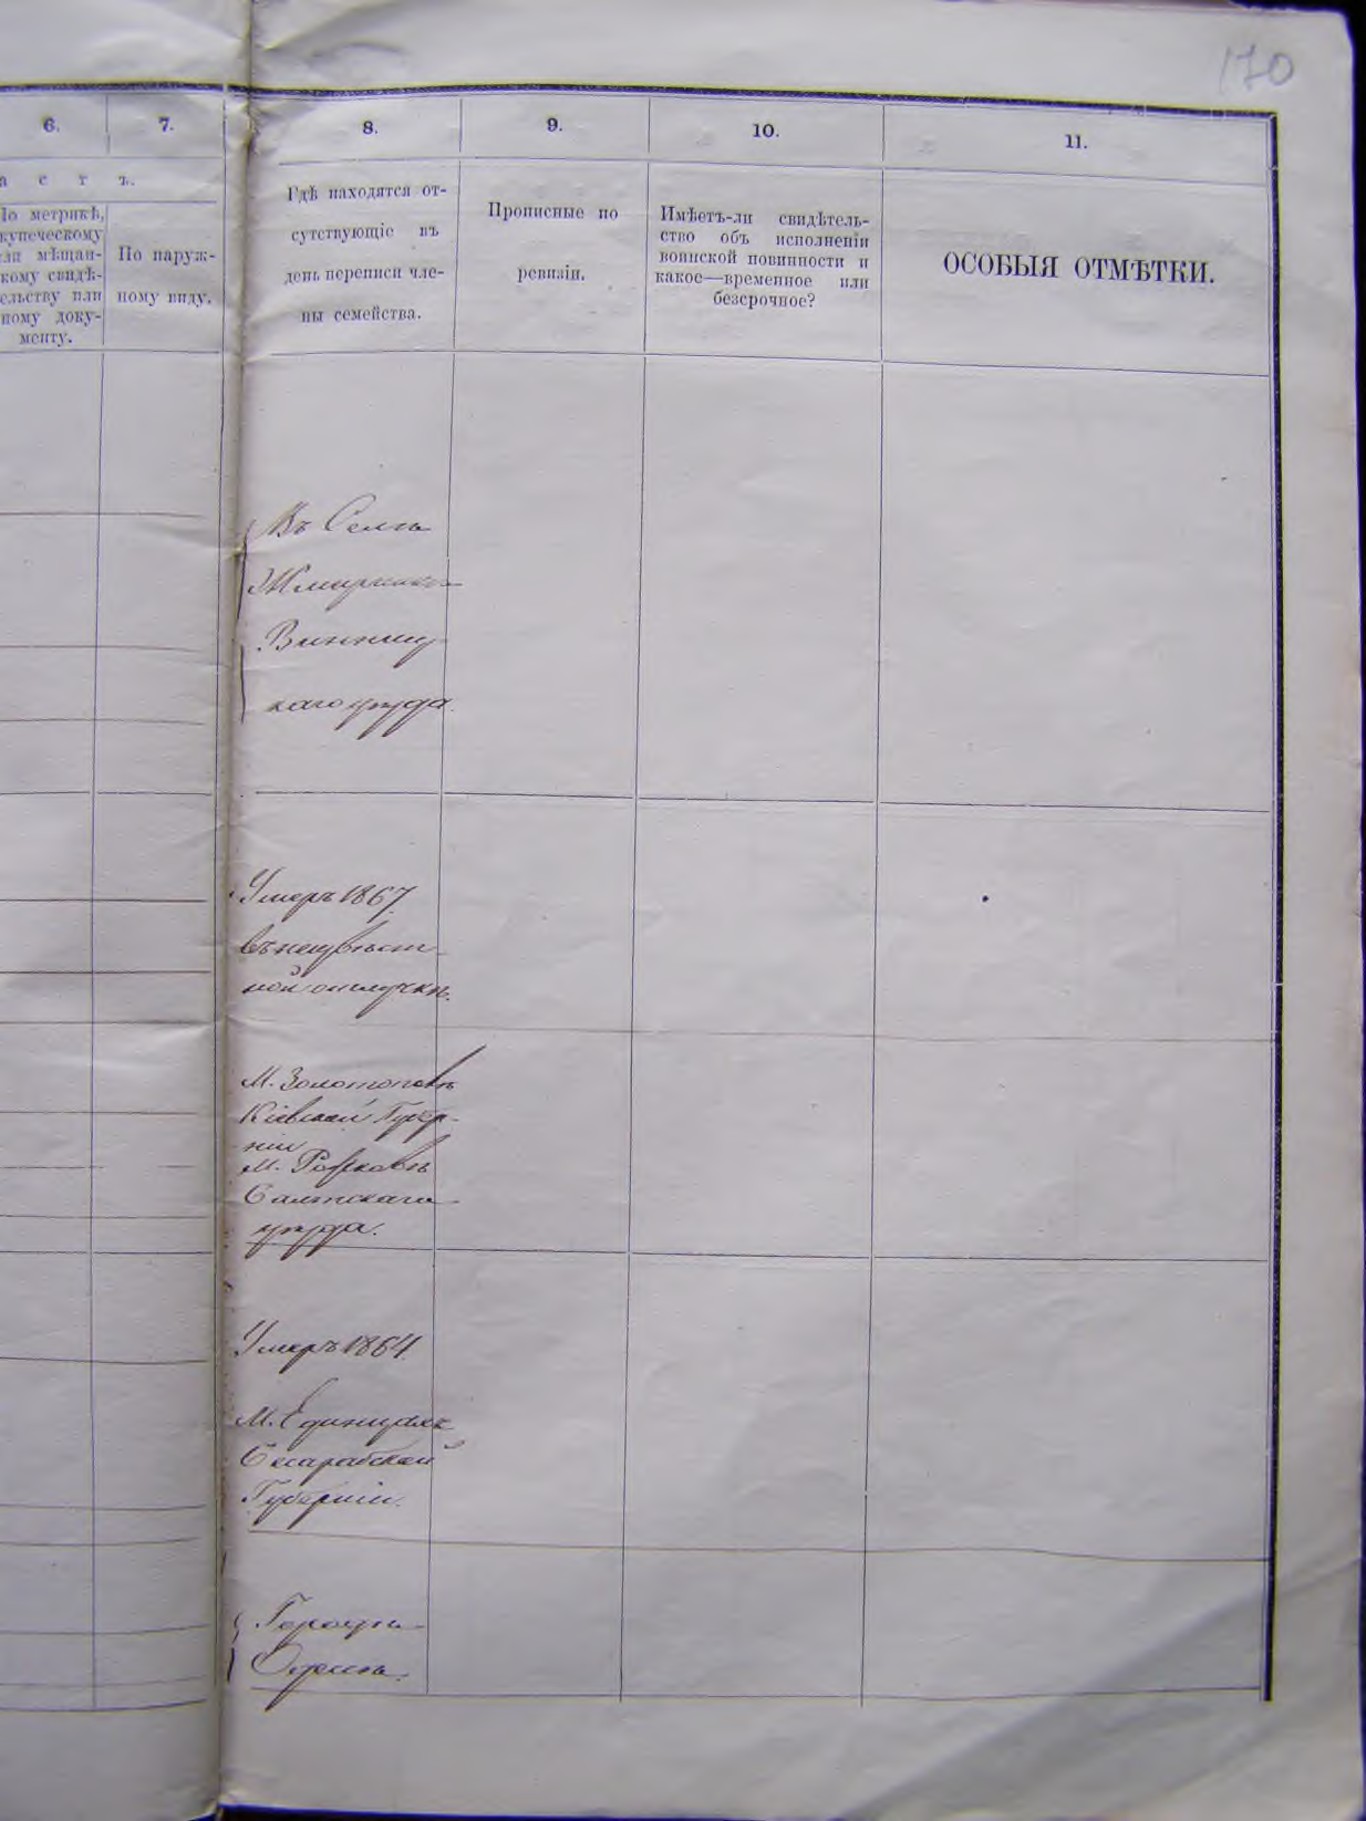 170
6.
7.
8.
9.
10.
11.
а с т ъ.
По метрикѣ,
купеческому
или мѣщан-
скому свидѣ-
ельству или
ному доку-
менту.
По наруж-
ному виду.
Гдѣ находятся от-
сутствующіе въ
день переписи чле-
ны семейства.
Прописные по
ревизіи.
Имѣетъ-ли свидѣтель-
ство объ исполненіи
воинской повинности и
какое—временное или
безсрочное?
ОСОБЫЯ ОТМѢТКИ.
Въ Селѣ
Жмеринкѣ
Винниц-
каго уѣзда.
Умеръ 1867.
въ неизвѣст-
ной отлучкѣ.
М. Золотоповѣ
Кіевской Губер-
ніи
М. Рашковѣ
Балтскаго
уѣзда.
Умеръ 1864.
М. Единцахъ
Бесарабской
Губерніи.
Городѣ
Одессѣ.